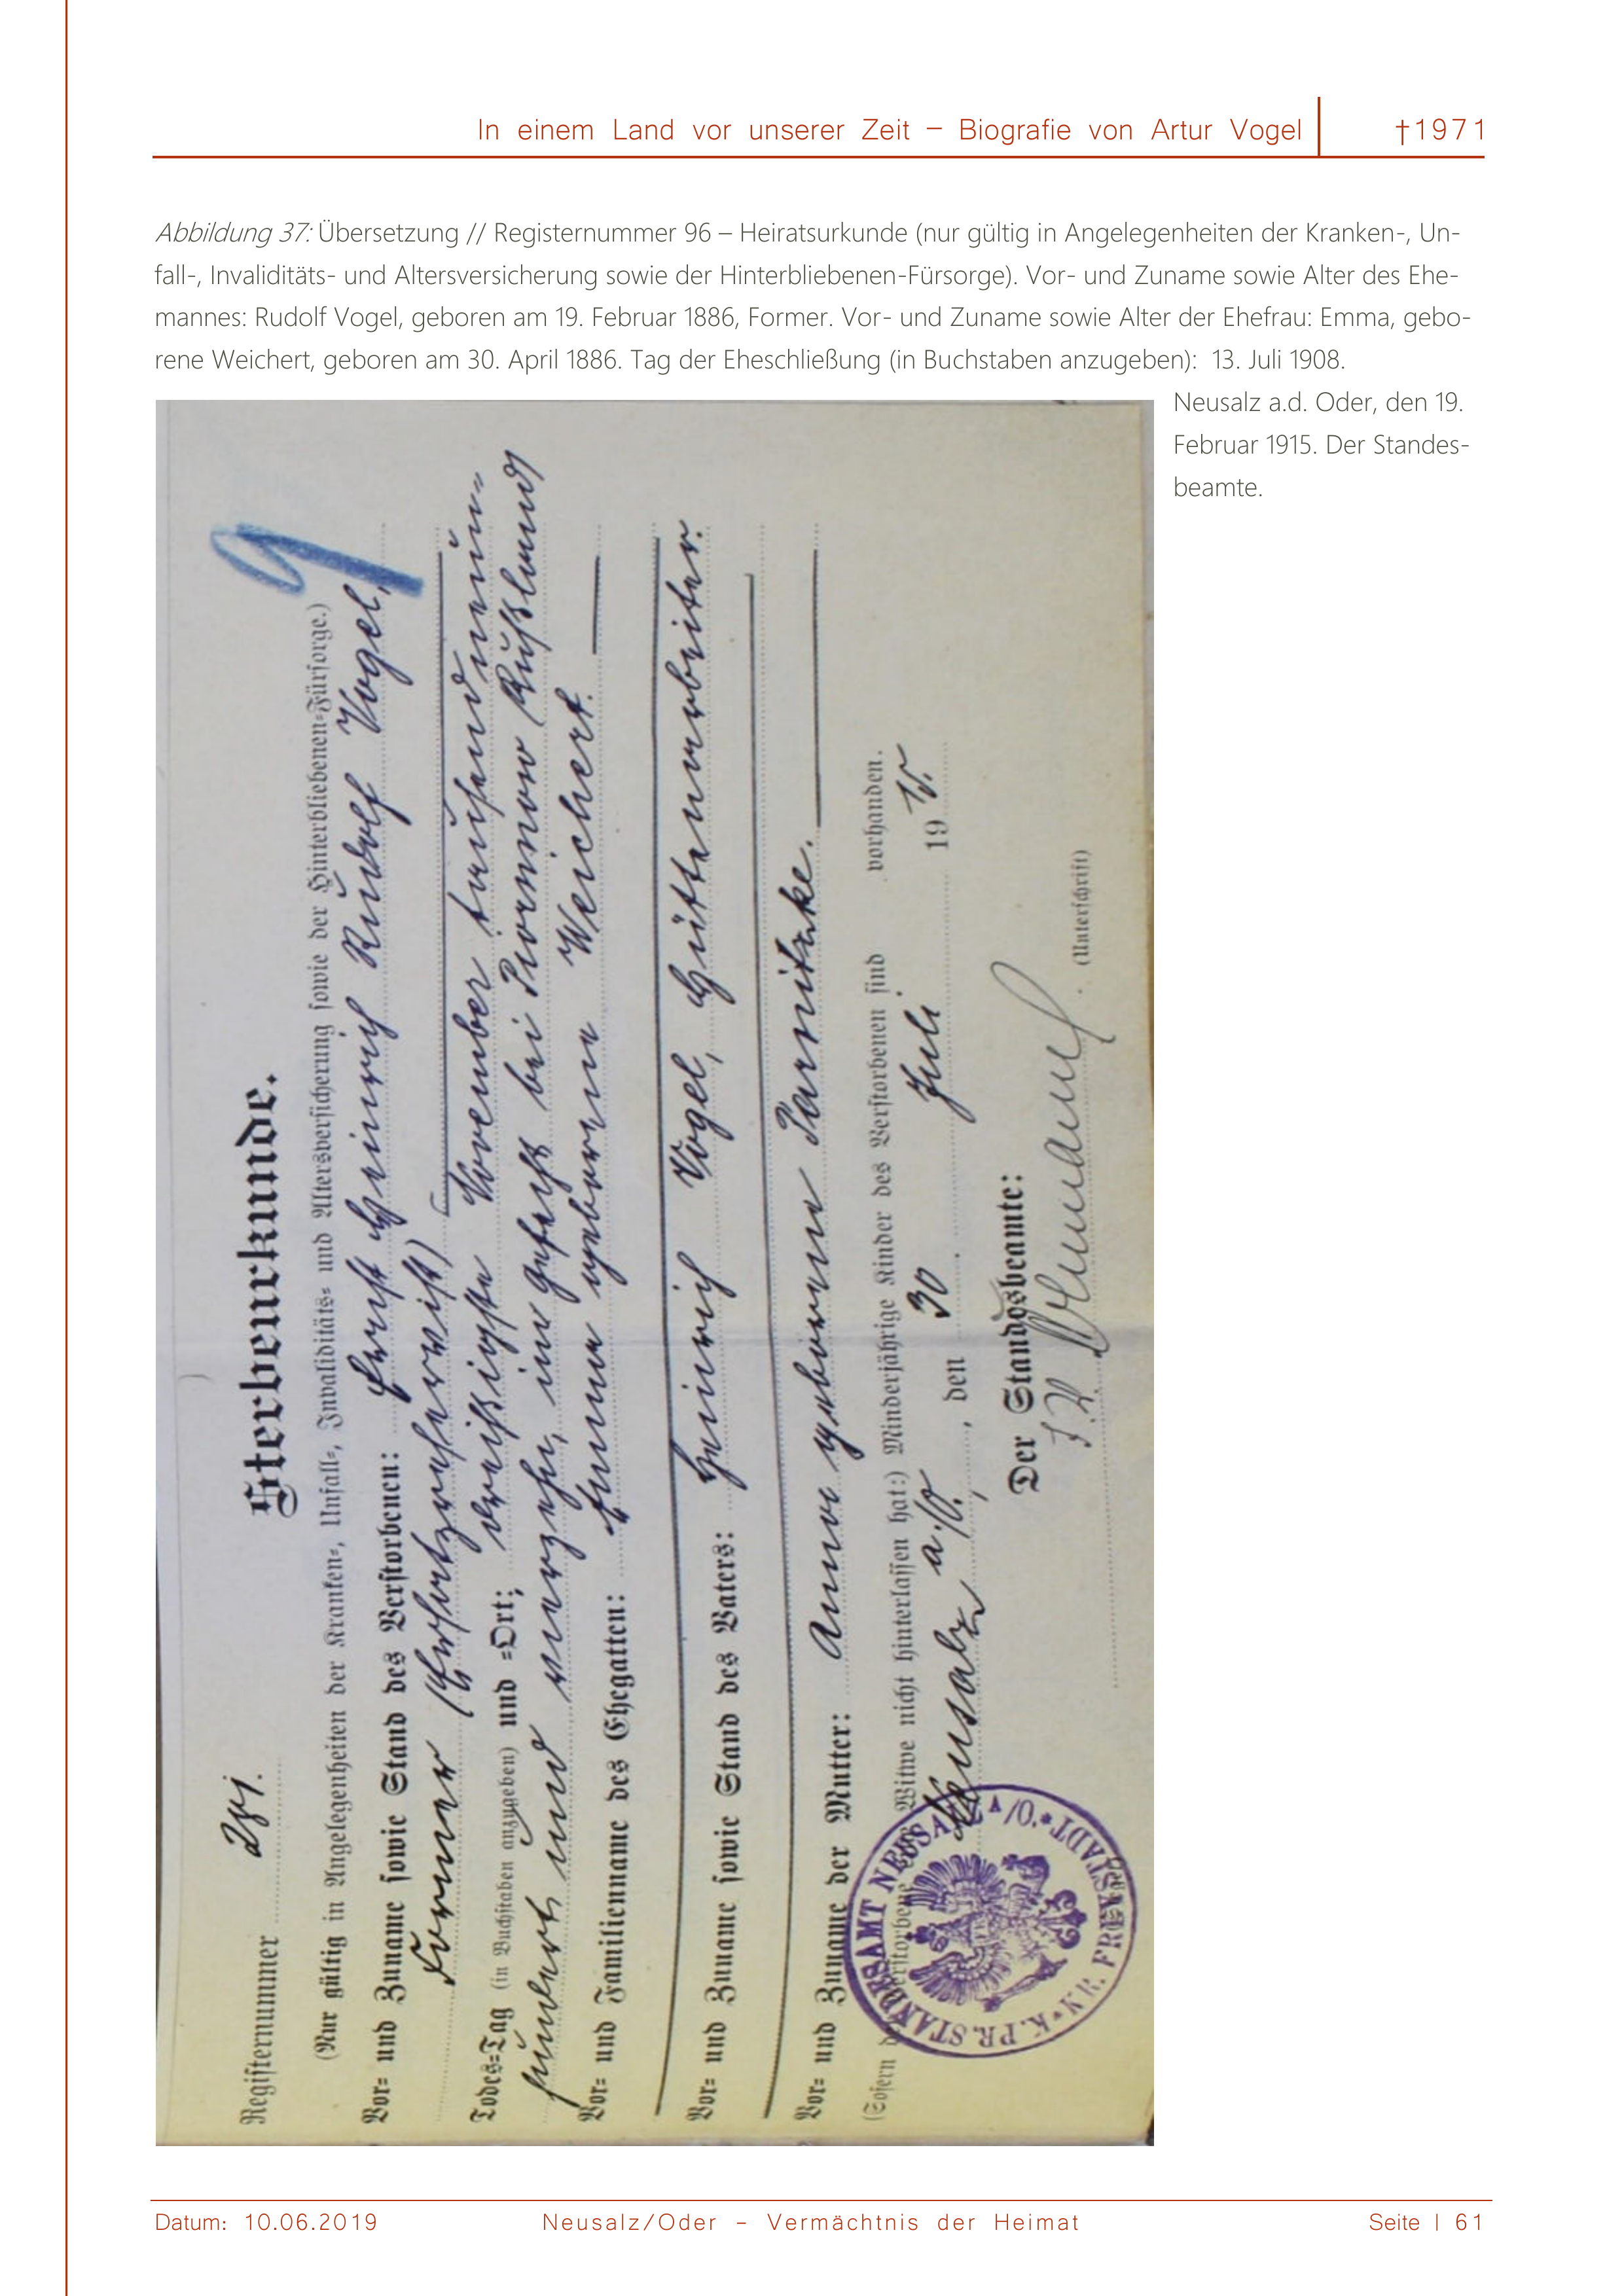 In einem Land vor unserer Zeit – Biografie von Artur Vogel
†1971
Abbildung 37: Übersetzung // Registernummer 96 – Heiratsurkunde (nur gültig in Angelegenheiten der Kranken-, Un-
fall-, Invaliditäts- und Altersversicherung sowie der Hinterbliebenen-Fürsorge). Vor- und Zuname sowie Alter des Ehe-
mannes: Rudolf Vogel, geboren am 19. Februar 1886, Former. Vor- und Zuname sowie Alter der Ehefrau: Emma, gebo-
rene Weichert, geboren am 30. April 1886. Tag der Eheschließung (in Buchstaben anzugeben): 13. Juli 1908.
Neusalz a.d. Oder, den 19.
Februar 1915. Der Standes-
beamte.
Registernummer
Sterbeurkunde.
(Nur gültig in Angelegenheiten der Kranken-, Unfall-, Invaliditäts- und Altersversicherung sowie der Hinterbliebenen-Fürsorge.)
Vor- und Zuname sowie Stand des Verstorbenen: Ernst Heinrich Rudolf Vogel,
Former (Ersatzreservist)
Todes-Tag (in Buchstaben anzugeben) und -Ort: dreißigste November tausendneun-
hundert und vierzehn, im Gefecht bei (Rußland)
Vor- und Familienname des Ehegatten: Emma geborene Weichert.
Vor- und Zuname sowie Stand des Vaters: Heinrich Vogel, Hüttenarbeiter.
Vor- und Zuname der Mutter: Anna geborene
(Sofern der Verstorbene eine Witwe nicht hinterlassen hat:) Minderjährige Kinder des Verstorbenen sind vorhanden.
Neusalz a/O., den 30. Juli 1915.
Der Standesbeamte:
(Unterschrift)
K. PR. STANDESAMT NEUSALZ A/O. STADT KR. FREYSTADT
Datum: 10.06.2019
Neusalz/Oder – Vermächtnis der Heimat
Seite | 61